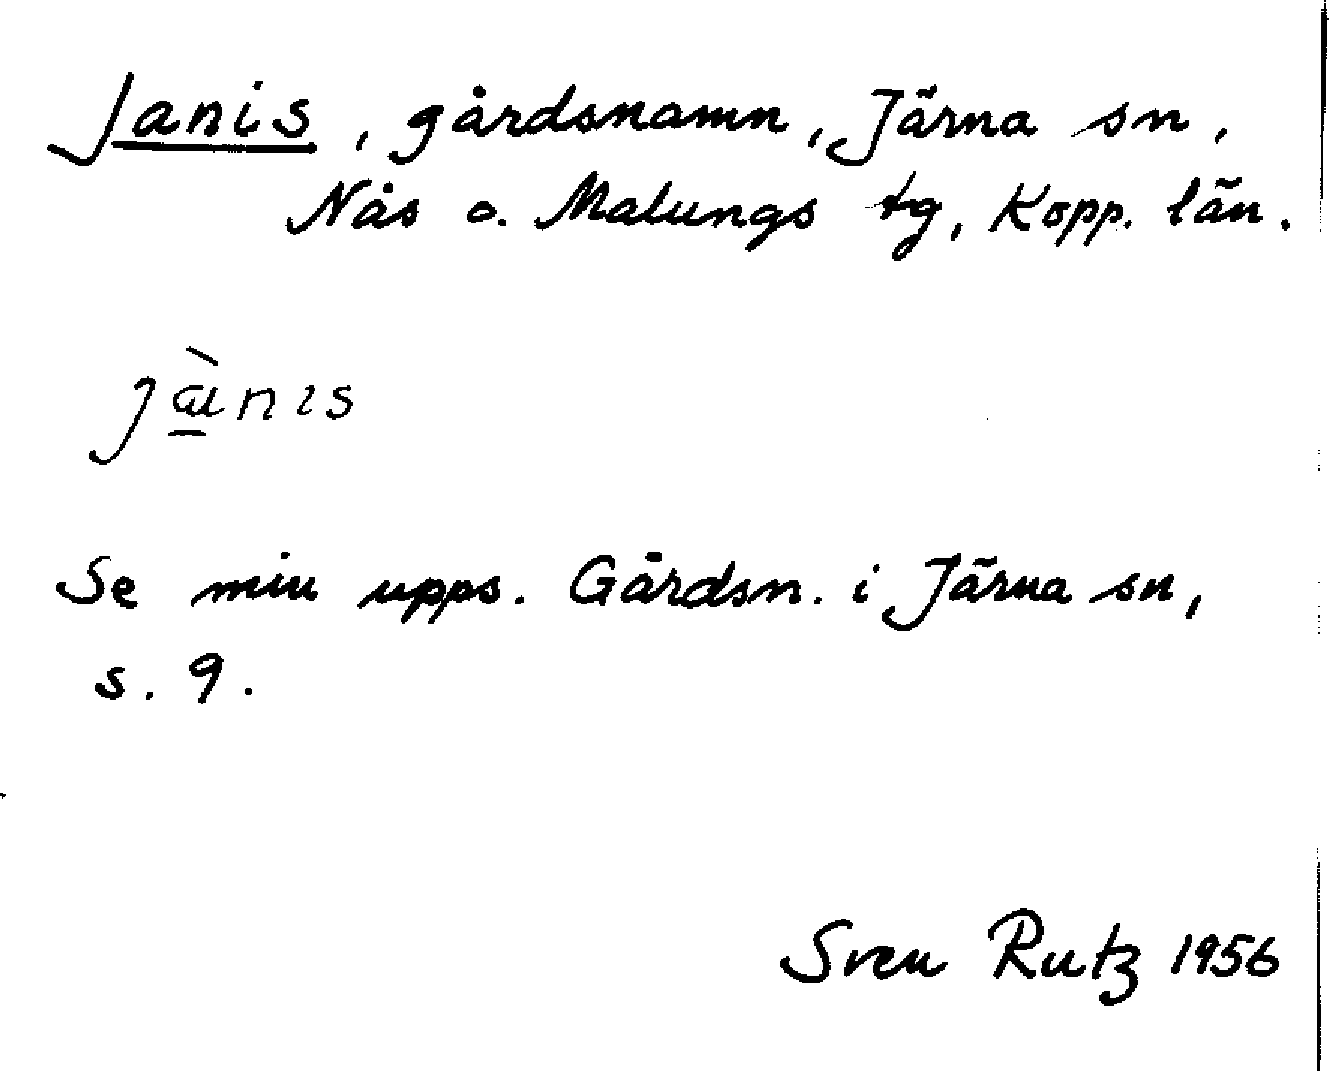 Janis, gårdsnamn, Järna sn,
Nås o. Malungs tg, Kopp. län.
jɑ̱̀nıs
Se min upps. Gårdsn. i Järna sn,
s. 9.
Sven Rutz 1956